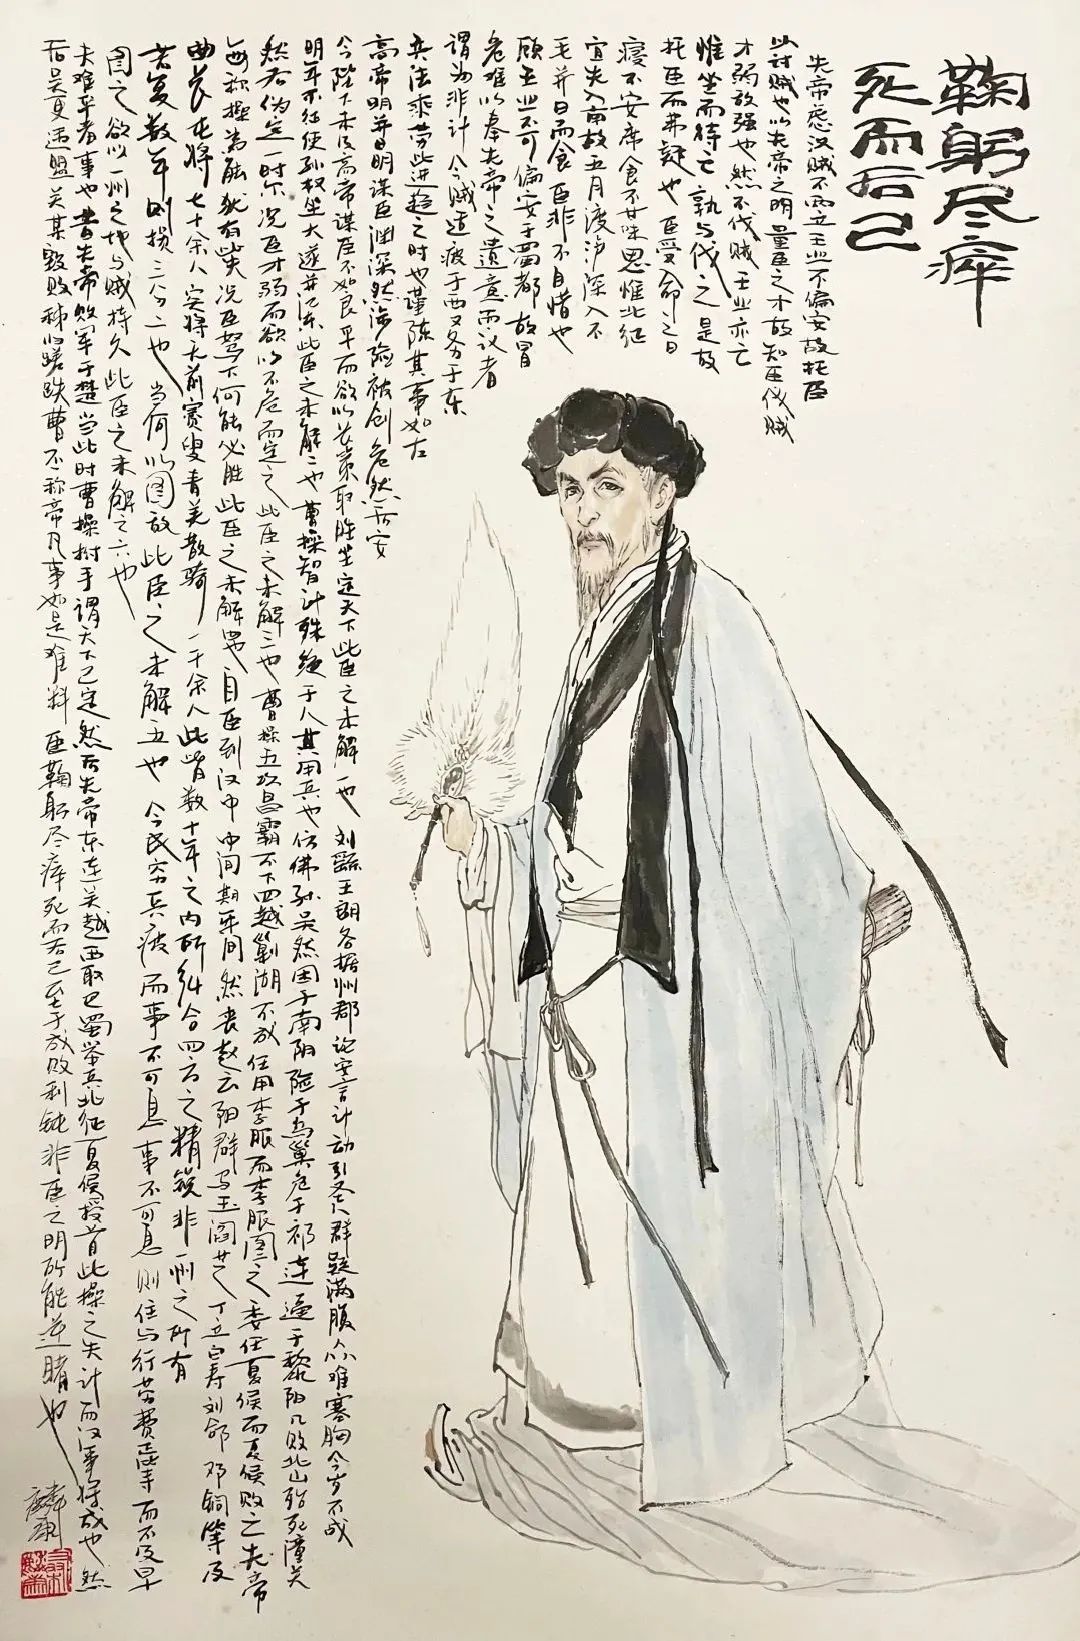 鞠躬尽瘁
死而后已
先帝虑汉贼不两立王业不偏安故托臣
以讨贼也以先帝之明量臣之才故知臣伐贼
才弱敌强也然不伐贼王业亦亡
惟坐而待亡孰与伐之是故
托臣而弗疑也臣受命之日
寝不安席食不甘味思惟北征
宜先入南故五月渡泸深入不
毛并日而食臣非不自惜也
顾王业不可偏安于蜀都故冒
危难以奉先帝之遗意而议者
谓为非计今贼适疲于西又务于东
兵法乘劳此进趋之时也谨陈其事如左
高帝明并日明谋臣渊深然涉险被创危然后安
今陛下未及高帝谋臣不如良平而欲以长策取胜坐定天下此臣之未解一也刘繇王朗各据州郡论安言计动引圣人群疑满腹众难塞胸今岁不战
明年不征使孙权坐大遂并江东此臣之未解二也曹操智计殊绝于人其用兵也仿佛孙吴然困于南阳险于乌巢危于祁连逼于黎阳几败北山殆死潼关
然后伪定一时尔况臣才弱而欲以不危而定之此臣之未解三也曹操五攻昌霸不下四越巢湖不成任用李服而李服图之委任夏侯而夏侯败亡先帝
每称操为能犹有此失况臣驽下何能必胜此臣之未解四也自臣到汉中中间期年间然丧赵云阳群马玉阎芝丁立白寿刘郃邓铜等及
曲长屯将七十余人突将无前賨叟青羌散骑一千余人此皆数十年之内所纠合四方之精锐非一州之所有
若复数年则损三分二也当何以图敌此臣之未解五也今民穷兵疲而事不可息事不可息则住与行劳费正等而不及早
图之欲以一州之地与贼持久此臣之未解六也
夫难平者事也昔先帝败军于楚当此时曹操拊手谓天下已定然后先帝东连吴越西取巴蜀举兵北征夏侯授首此操之失计而汉事将成也然
后吴更违盟关某毁败秭归蹉跌曹丕称帝凡事如是难料臣鞠躬尽瘁死而后已至于成败利钝非臣之明所能逆睹也